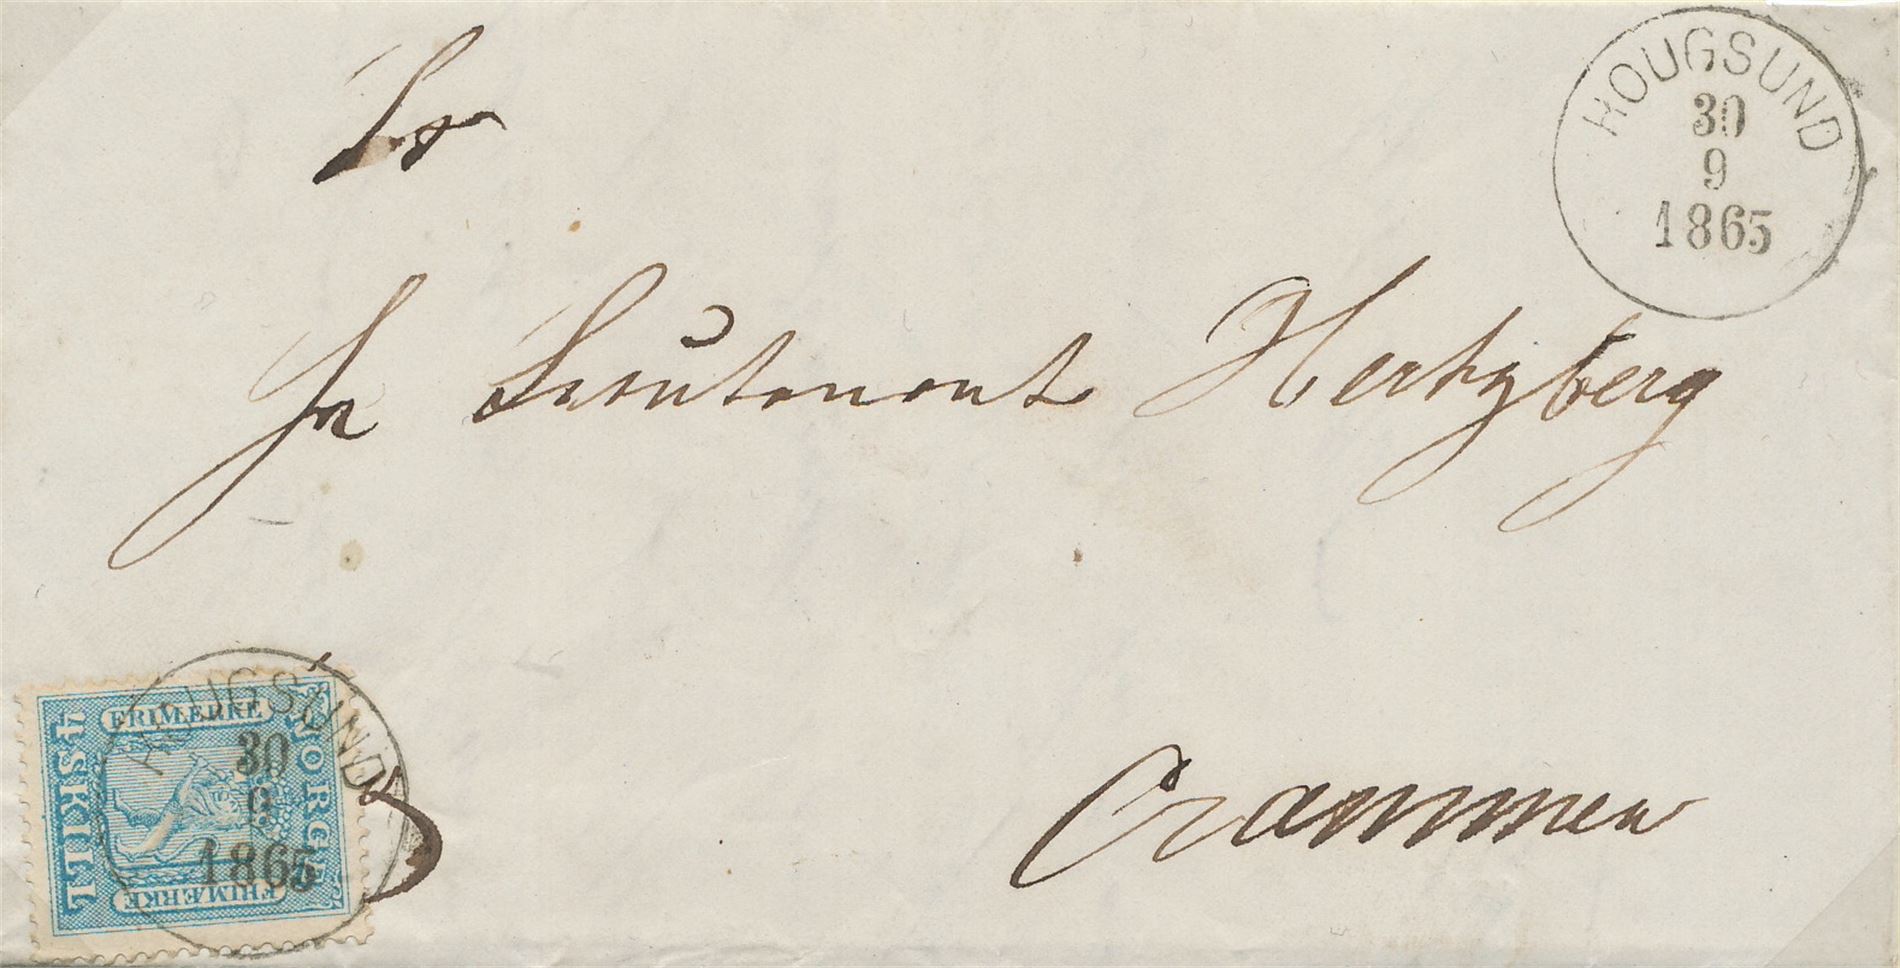 HOUGSUND
30
9
1865
Hr Lieutenant Hertzberg
Drammen
HOUGSUND
30
9
1865
FRIMÆRKE
NORGE
4 SKILL
FRIMÆRKE